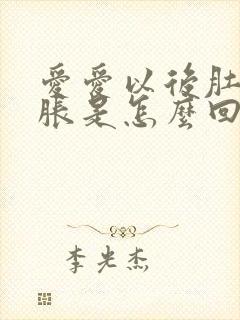 爱爱以後肚
脹是怎麼回
李光杰